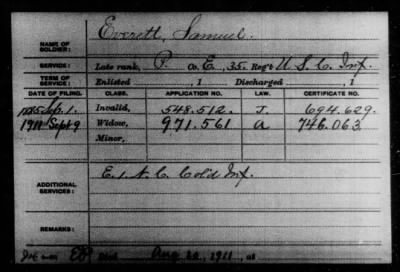 NAME OF SOLDIER: Everett, Samuel.
SERVICE: Late rank, P. Co. E, 35. Reg't U. S. C. Inf.
TERM OF SERVICE: Enlisted , 1 Discharged , 1
DATE OF FILING. CLASS. APPLICATION NO. LAW. CERTIFICATE NO.
1885 Sep. 1. Invalid, 548.512. J. 694.629.
1911 Sept 9 Widow, 971.561 a 746.063.
Minor,
ADDITIONAL SERVICES: E. 1 N. C. Cold Inf.
REMARKS:
Died Aug 22, 1911, at